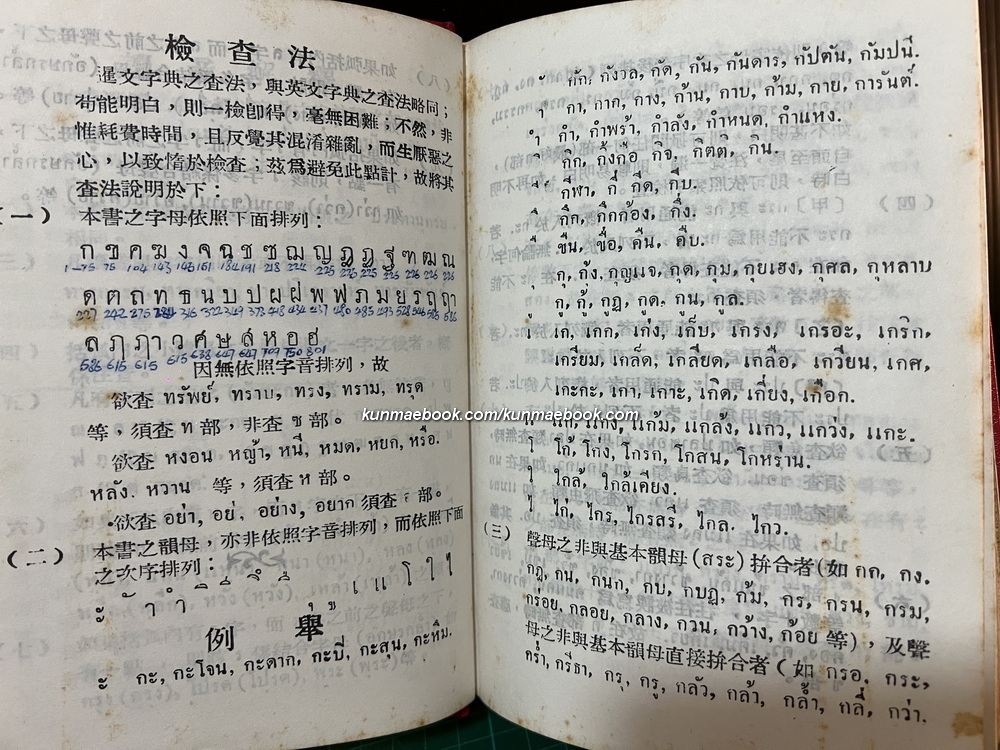 檢查法
暹文字典之查法，與英文字典之查法略同；
茍能明白，則一檢卽得，毫無困難；不然，非
惟耗費時間，且反覺其混淆雜亂，而生厭惡之
心，以致惰於檢查；茲爲避免此點計，故將其
查法說明於下：
(一) 本書之字母依照下面排列：
ก ข ค ฆ ง จ ฉ ช ซ ฌ ญ ฎ ฏ ฐ ฑ ฒ ณ
ด ต ถ ท ธ น บ ป ผ ฝ พ ฟ ภ ม ย ร ฤ ฤา
ล ฦ ฦา ว ศ ษ ส ห อ ฮ
因無依照字音排列，故
欲查 ทรัพย์, ทราบ, ทรง, ทราม, ทรุด
等，須查 ท 部，非查 ซ 部。
欲查 หงอน หญ้า, หนี, หมด, หยก, หรือ.
หลัง. หวาน 等，須查 ห 部。
欲查 อย่า, อยู่, อย่าง, อยาก 須查 อ 部。
(二) 本書之韻母，亦非依照字音排列，而依照下面
之次序排列：
ะ ั า ำ ิ ี ึ ื ุ ู เ แ โ ใ ไ
例舉
ะ กะ, กะโจน, กะดาก, กะบี่, กะสน, กะหิม.
ั กัก, กังวล, กัด, กัน, กันดาร, กัปตัน, กัมปนี.
า กา, กาก, กาง, ก้าน, กาบ, ก้าม, กาย, การันต์.
ำ กำ, กำพร้า, กำลัง, กำหนด, กำแหง.
ิ กิก, กิ่งก่อ กิจ, กิตติ, กิน.
ี กีฬา, กี่ กีด, กีบ.
ึ กึก, กึกก้อง, กึ่ง.
ื ขืน, ขื่อ, คืน, คืบ.
ุ กุ, กุ้ง, กุญแจ, กุด, กุม, กุยเฮง, กุศล, กุหลาบ
ู กู, กู้, กูฏ, กูด, กูน, กูล.
เ เก, เกก, เก่ง, เก็บ, เกรง, เกรอะ, เกริก,
เกรียม, เกล็ด, เกลียด, เกลือ, เกวียน, เกศ,
เกะกะ, เกา, เกาะ, เกิด, เกี่ยง, เกือก.
แ แก, แกง, แก้ม, แกล้ง, แกว, แกว่ง, แกะ.
โ โก้, โก่ง, โกรก, โกสน, โกหร่าน.
ใ ใกล้, ใกล้เคียง.
ไ ไก่, ไกร, ไกรสรี, ไกล. ไกว.
(三) 聲母之非與基本韻母(สระ)拚合者(如 กก, กง.
กฎ, กน, กนก, กบ, กบฏ, ก้ม, กร, กรน, กรม,
กร่อย, กลอย, กลาง, กวน, กว้าง, ก้อย 等)，及聲
母之非與基本韻母直接拚合者 (如 กรอ. กระ,
คร่ำ, กรีธา, กรุ, กรู, กลัว, กล้า, กล้ำ, กลี่, กว่า.
kunmaebook.com/kunmaebook.com